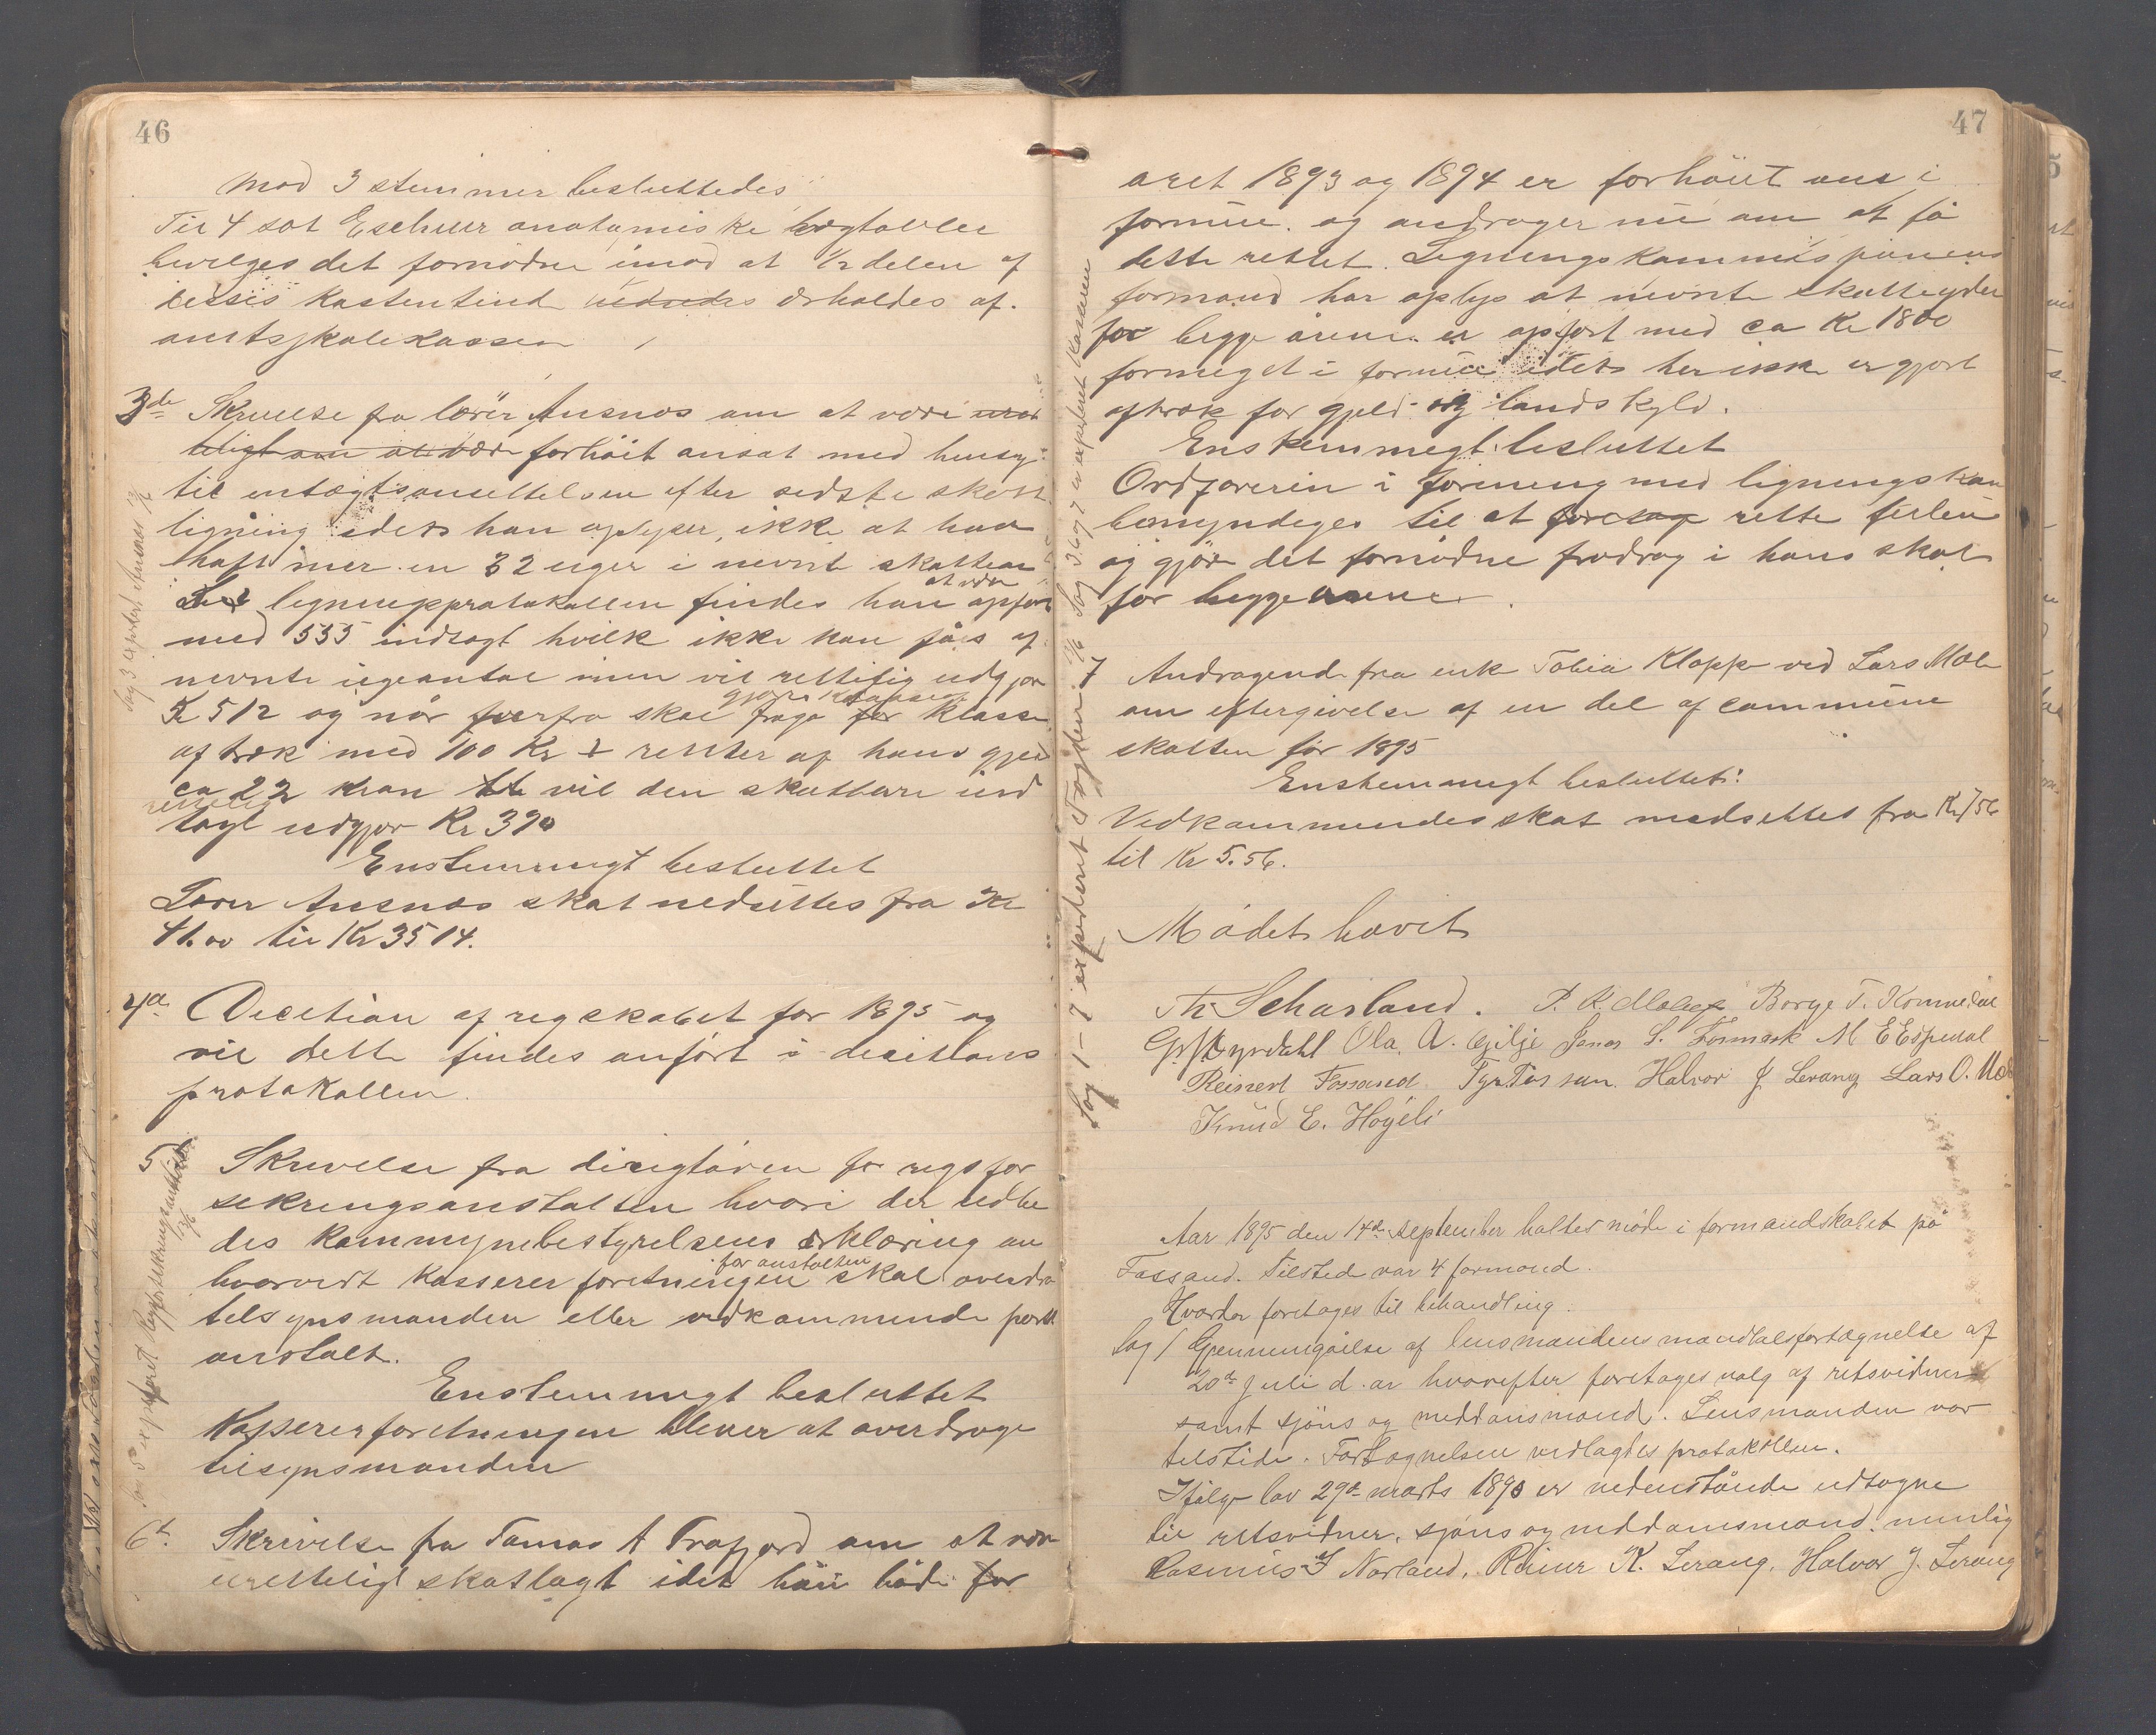 46
mod 3 stemmer besluttedes
Til 4 sæt Eschner anatomiske vægtavler
bevilges det fornødne imod at 1/2 delen af
disses kostentend erholdes af
amtsskolekassen
3de Skrivelse fra lærer Ausnes om at være uret
teligt om at være forhöit ansat med hensyn
til indtægtsansettelsen efter sidste skatte
ligning idet han oplyser, ikke at have
haft mer en 32 uger i nevnte skatteaar
I ligningsprotokollen findes han at være opført
med 535 indtægt hvilk ikke kan fåes af
nevnte ugeantal men vil rettelig udgjøre
Kr 512 og når herfra skal gjøres fradrag for klasse
aftræk med 100 Kr + renter af hans gjeld
ca 22 kron vil den skatbare ind
tægt rettelig udgjør Kr 390
Enstemmigt besluttet
Lærer Ausnes skat nedsættes fra Kr
41.00 til Kr 35 14.
4de Decition af regskabet for 1895 og
vil dette findes anført i decitions
protokollen.
5 Skrivelse fra dirigtøren for rigsfor
sekringsanstalten hvori der udbe
des kommynebestyrelsens erklæring om
hvorvidt kasserer foretningen for anstalten skal overdra
tilsynsmanden eller vedkommende post
anstalt.
Enstemmigt besluttet
Kassererforetningen bliver at overdrage
tilsynsmanden
6te Skrivelse fra Tomas A Frafjord om at være
urettelig skatlagt idet han både for
Sag 3 expedert Ausnes
Sag 5 expederet Rigsforsekringsanstalten
47
aret 1893 og 1894 er forhöiet ans i
formue. og andrager nu om at få
dette rettet. Ligningskommissionens
formand har oplys at nevnte skatteyder
for begge årene er opført med ca Kr 1800
formeget i formue idet her ikke er gjort
aftræk for gjeld og landskyld.
Enstemmigt besluttet
Ordføreren i forening med ligningskom
bemyndiges til at foretag rette feilen
og gjøre det fornødne fradrag i hans skat
for begge årene.
7 Andragende fra enk Tobia Klopp ved Lars Mæle
om eftergivelse af en del af commune
skatten för 1895
Enstemmigt besluttet:
Vedkommendes skat nedsættes fra Kr 7 56
til Kr 5.56.
Mödet hævet
Th Scharland. P. K. Meling Børge T. Kommedal
G Gyrdahl Ola A. Gilje Jonas S. Fosmark M E Espedal
Reinert Fossand. Tyr Torsson. Halvor J. Levang Lars O. Mæle
Knud E. Högeli
Sag 1-7 expederet Fogden 7/6 Sag 3. 6 og 7 er expederet Kasseren
Aar 1895 den 14de september holtes møde i formandskabet på
Fossand. Tilstede var 4 formænd.
Hvorder foretages til behandling.
Sag 1 Gjennemgåelse af lensmandens mandtalsfortægnelse af
20de juli d. ar hvorefter foretages valg af retsvidner
samt sjöns og meddomsmænd. Lensmanden var
tilstede. Fortægnelsen vedlagdes protokollen.
Ifølge lov 29de marts 1890 er nedenstående udtagne
til retsvidner, sjöns og meddomsmænd, nemlig
Rasmus J Norland, Reiner K. Levang, Halvor J. Levang